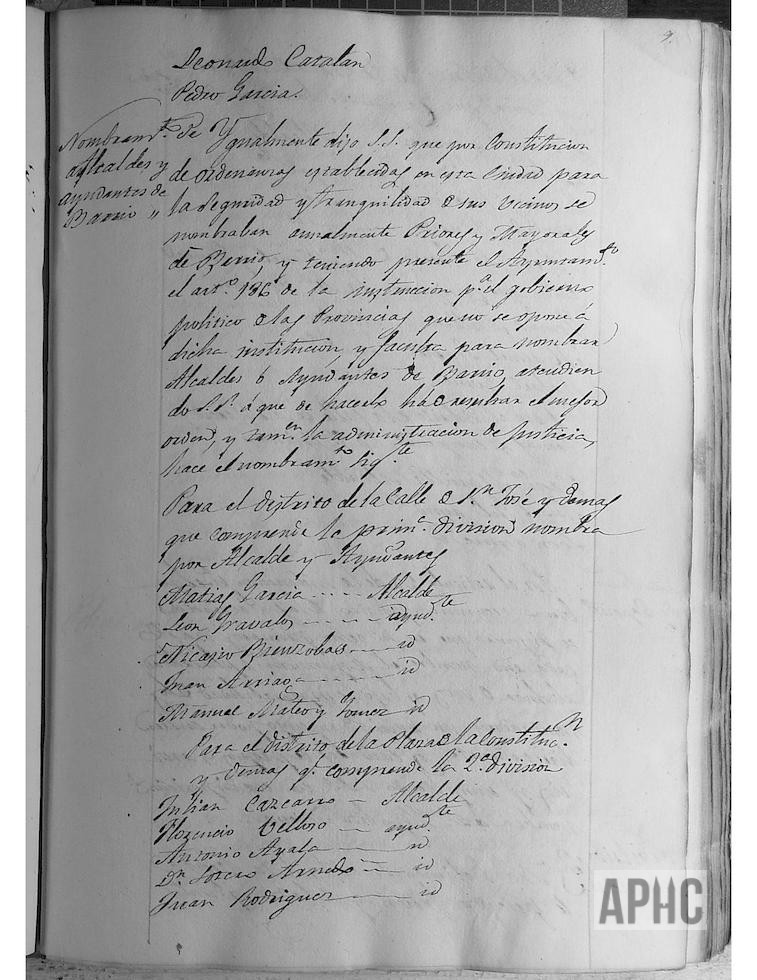 9.
Leonardo Catalan
Pedro Garcia.
Nombramto. de
Alcaldes y
ayudantes de
Barrio "
Ygualmente dijo S.S. que por Constitucion
de ordenanzas establecidas en esta Ciudad para
la seguridad y tranquilidad de sus vecinos se
nombraban anualmente Priores y Mayorales
de Barrio, y teniendo presente el Ayuntamto.
el arto. 186 de la instruccion pa. el gobierno
politico de las Provincias que no se opone á
dicha institucion y faculta para nombrar
Alcaldes ó Ayudantes de Barrio, atendien
do S.S. á que de hacerlo há de resultar el mejor
orden, y tamn. la administracion de justicia,
hace el nombramto. sigte.
Para el distrito de la Calle de Sn. José y demas
que comprende la prima. division nombra
por Alcalde y Ayudantes
Matias Garcia ---- Alcalde
Leon Gravalos ---- ayudte.
Nicasio Bienzobas ---- id
Juan Arriaga ---- id
Manuel Mateo y Gomez id
Para el distrito de la Plaza de la Constitucn.
y demas q. comprende la 2a. division
Julian Cazcarro — Alcalde
Florencio Velloso — ayudte.
Antonio Ayala — id
Dn. Arnedo — id
Juan Rodriguez — id
APHC